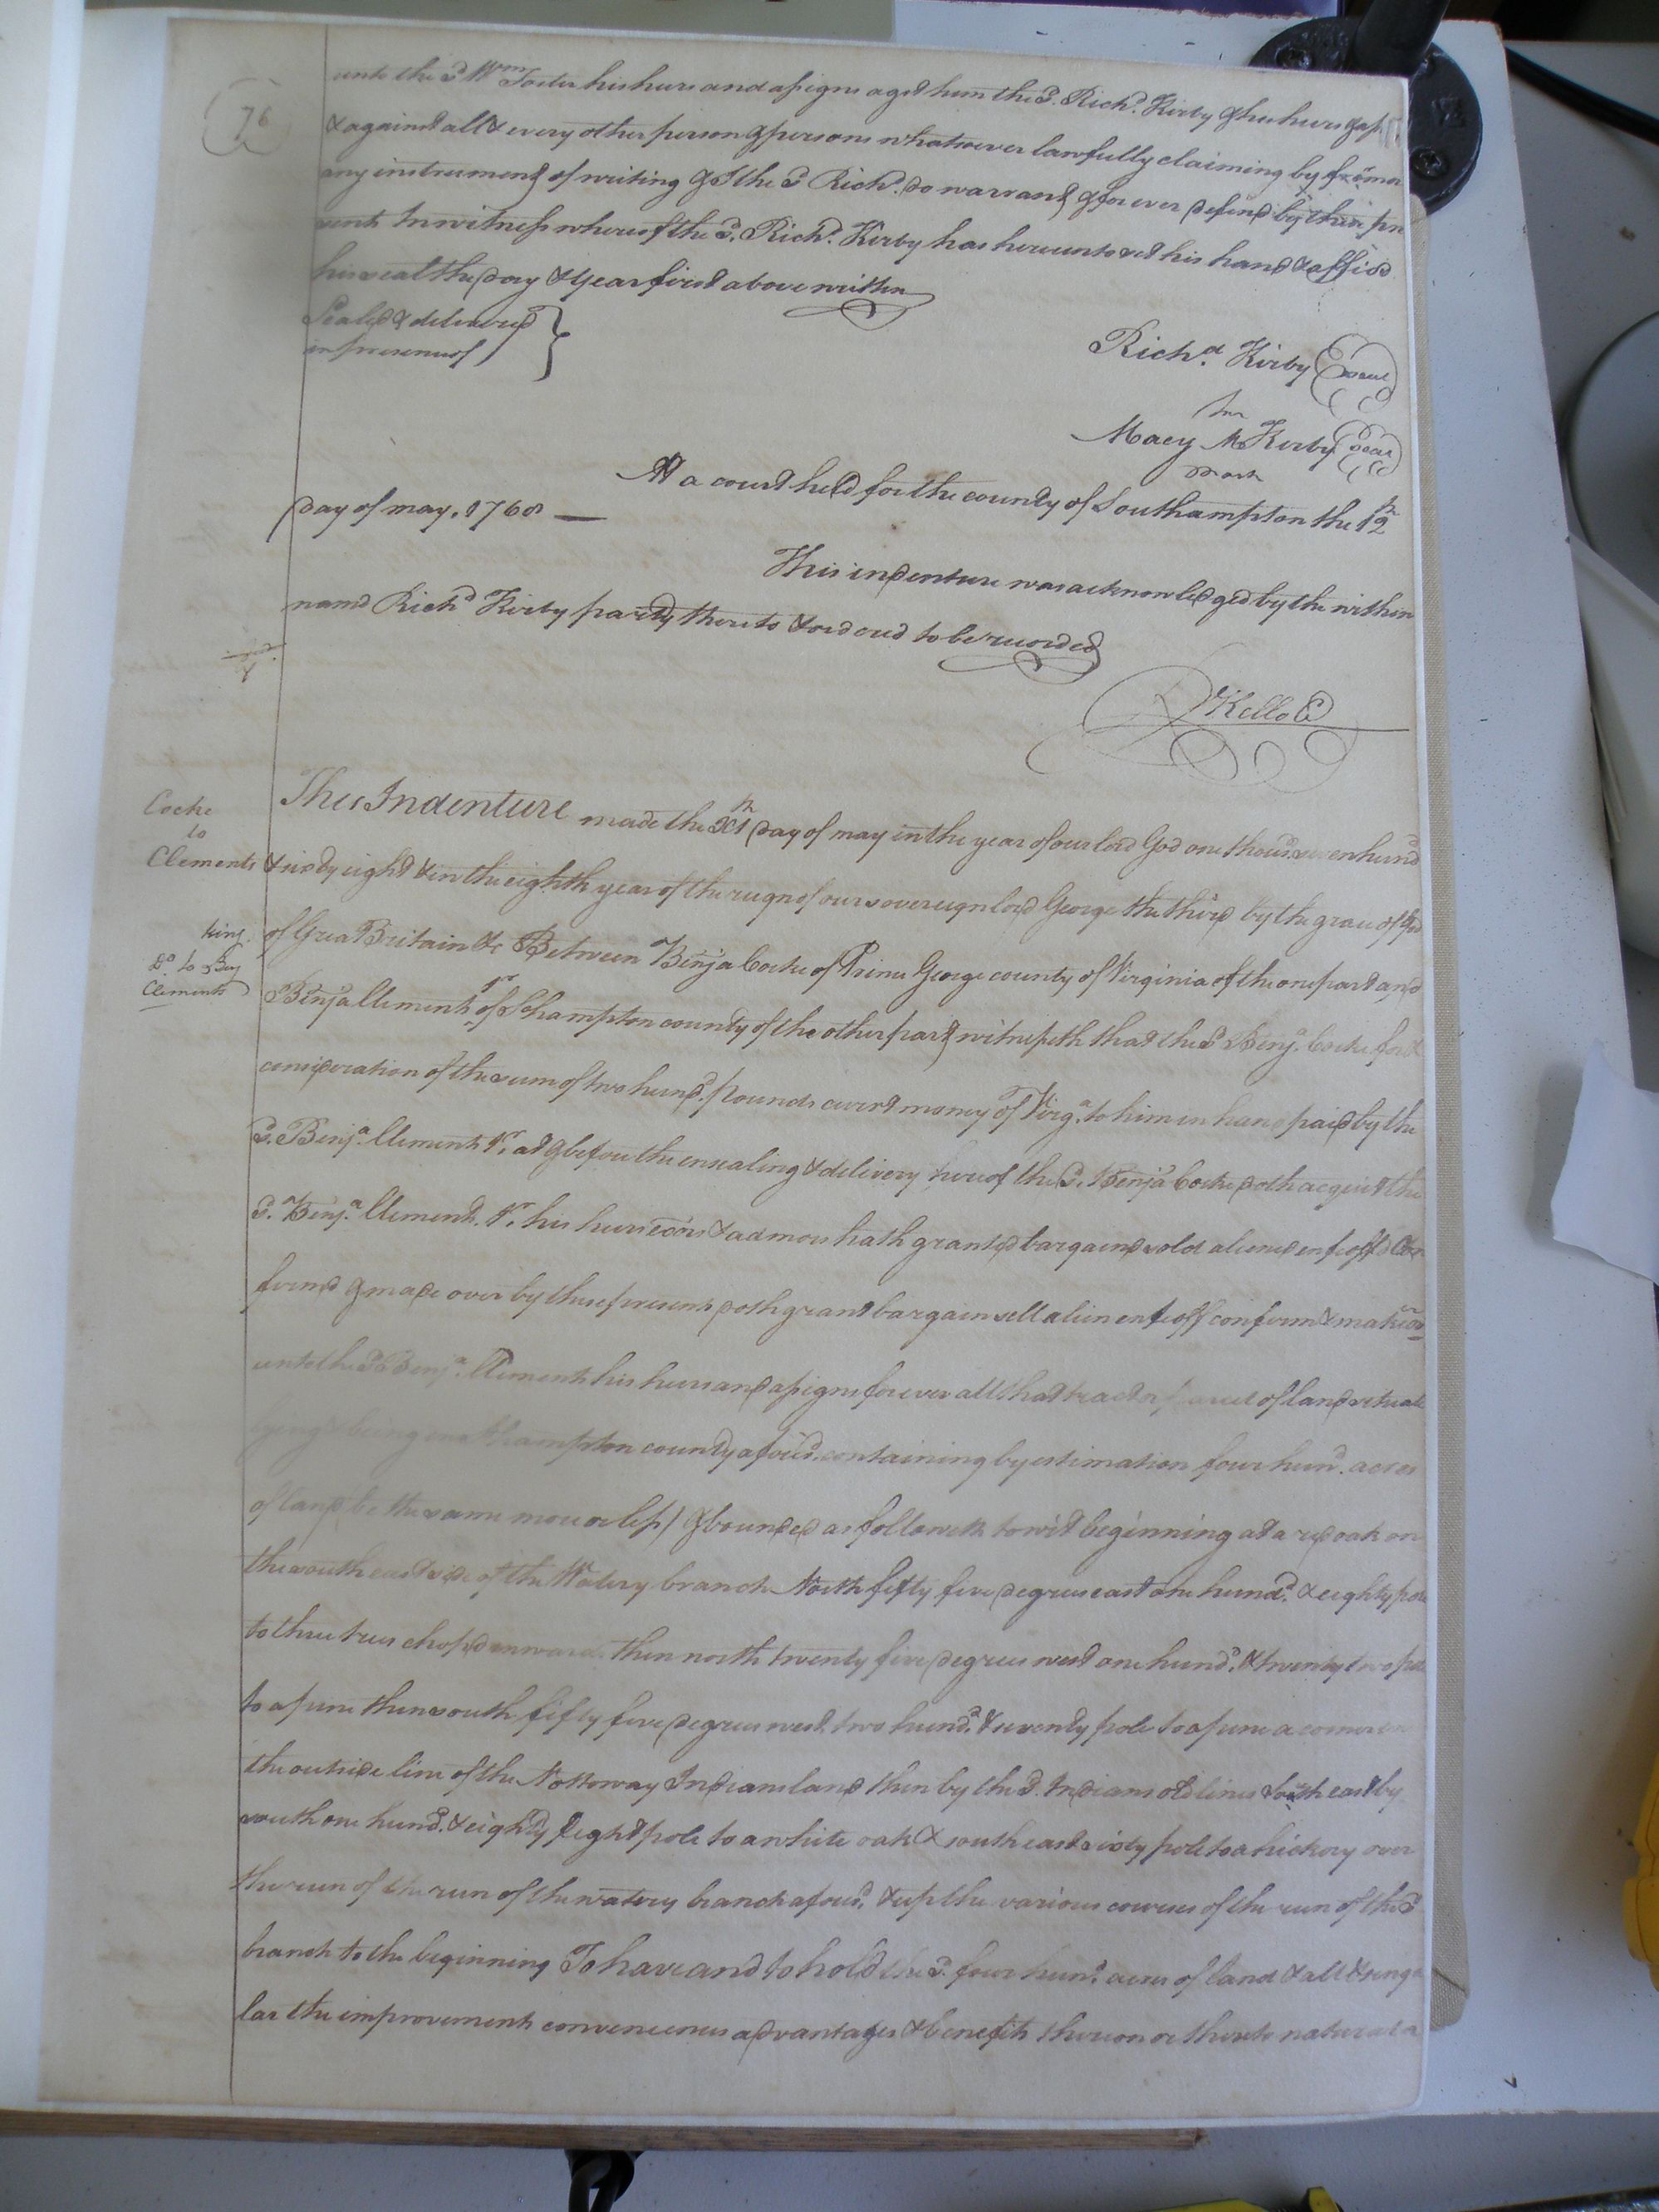 76
unto the sd. Wm. Foster his heirs and assigns agst him the sd. Richd. Kirby & his heirs &
& against all & every other person & persons whatsoever lawfully claiming by from or
any instrument of writing & I the sd Richd. do warrant & forever defend by these pre
sents In witness whereof the sd. Richd. Kirby has hereunto set his hand & affixd
his seal the day & year first above written
Sealed & delivered
in presence of
Richd. Kirby seal
her
Mary M Kirby seal
mark
At a court held for the county of Southampton the 12th
day of may. 1768
This indenture was acknowledged by the within
namd Richd Kirby party thereto & orderd to be recorded
R Kello C
Cocke
to
Clements
This Indenture made the day of may in the year of our lord God one thousd. seven hund
& sixty eight & in the eighth year of the reign of our sovereign lord George the third by the grace of God
king
of Great Britain &c Between Benja Cocke of Prince George county of Virginia of the one part and
Dd. to Benj
Clements
Benja Clements of Shampton county of the other part witnesseth that the sd Benja. Cocke for &
consideration of the sum of two hund. pounds currt money of Virga. to him in hand paid by the
sd. Benja. Clements at & before the ensealing & delivery hereof the sd. Benja Cocke doth acquit the
sd. Benja. Clements. his heirs exors & admors hath granted bargaind sold aliend enfeoffd Con
firmd & made over by these presents doth grant bargain sell alien enfeoff confirm & make over
unto the sd Benja. Clements his heirs and assigns forever all that tract or parcel of land situate
lying & being in Shampton county aforesd. containing by estimation four hund. acres
of land (be the same more or less) & bounded as followeth to wit beginning at a red oak on
the south east side of the Watery branch North fifty five degrees east one hund. & eighty pole
to three trees chopd inwards then north twenty five degrees west one hund. & twenty two pole
to a pine then south fifty five degrees west two hund. & seventy pole to a pine a corner in
the outside line of the Nottoway Indians land then by the sd. Indians old lines South east by
south one hund. & eighty eight pole to a white oak & south east sixty pole to a hickory over
the run of the run of the watery branch aforesd. & up the various courses of the run of the sd
branch to the beginning To have and to hold the sd. four hund. acres of land & all & singu
lar the improvements conveniences advantages & benefits thereon or thereto natural